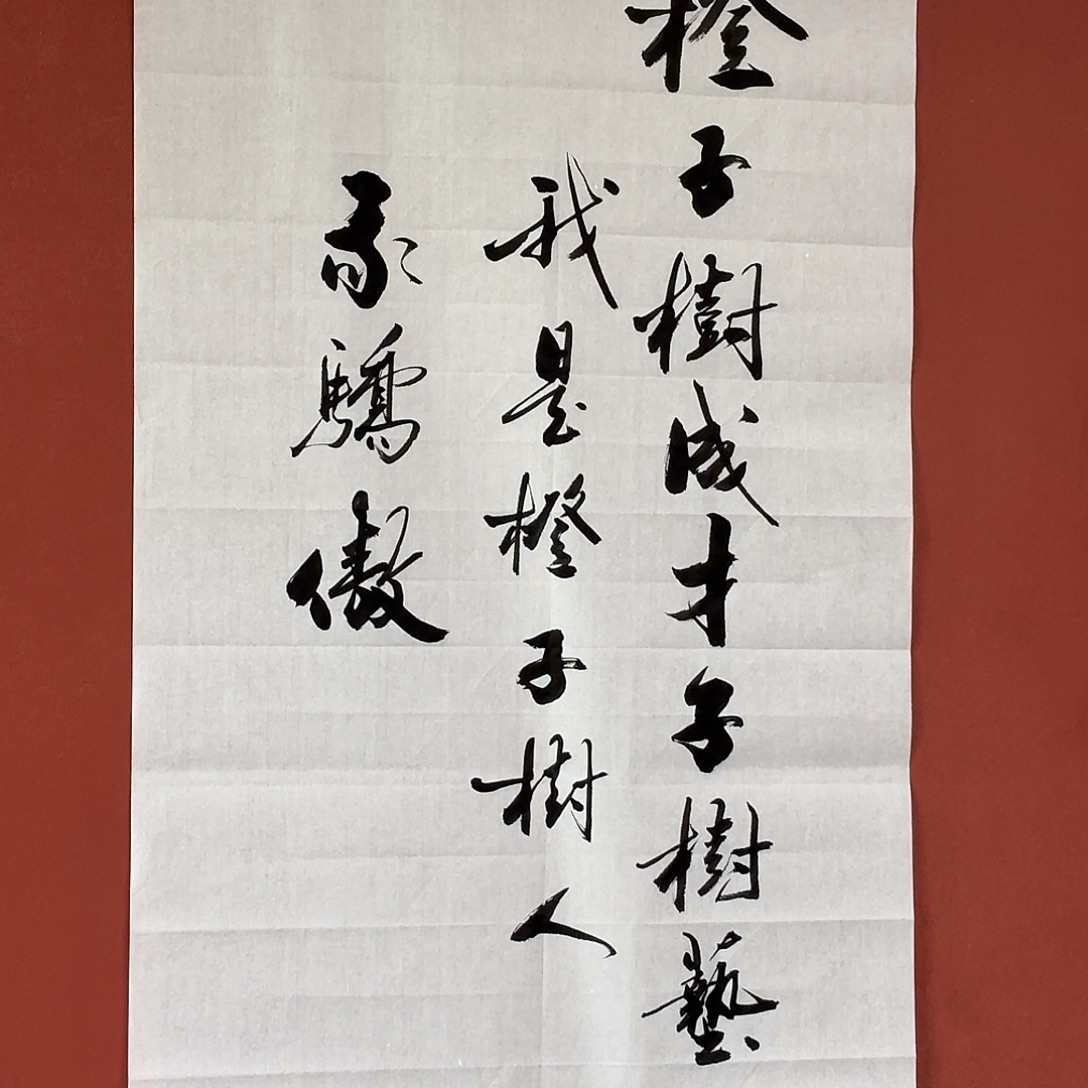 橙子樹成才子樹藝
我是橙子樹人
我驕傲